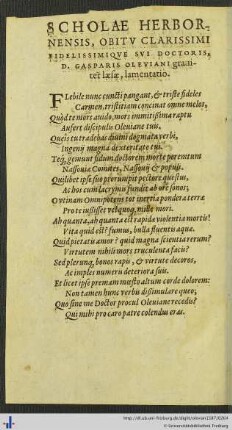 SCHOLAE HERBOR-
NENSIS, OBITV CLARISSIMI
FIDELISSIMIQVE SVI DOCTORIS,
D. GASPARIS OLEVIANI graui-
ter læsæ, lamentatio.
FLebile nunc cuncti pangant, & triste fideles
Carmen tristitiam concinat omne melos,
Quòd te mors auido, mors immitissima raptu
Aufert discipulis Oleuiane tuis,
Queis tu tradebas diuini dogmata verbi,
Ingenij magna dexteritate tui.
Teq; gemunt fidum doctorem morte peremtum
Nassouiæ Comites, Nassouij & populi.
Quilibet ipse suo prorumpit pectore questus,
Ac hos cum lacrymis fundit ab ore sonos,
O vtinam Omnipotens tot inertia pondera terra
Pro te iussisset
Ah quanta, ah quanta est rapidæ violentia mortis!
Vita quid est? fumus, bulla, fluentis aqua.
Quid pietatis amor? quid magna scientia rerum?
Virtutem nihili mors truculenta facit?
Sed plerunq; bonos rapit, & virtute decoros,
Ac implet numeru deteriora suis.
Et licet ipse premam mæsto altum corde dolorem:
Non tamen hunc verbis dissimulare queo;
Quo sine me Doctor procul Oleuiane recedis?
Qui mihi pro caro patre colendus eras.
http://dl.ub.uni-freiburg.de/diglit/
© Universitätsbibliothek Freiburg